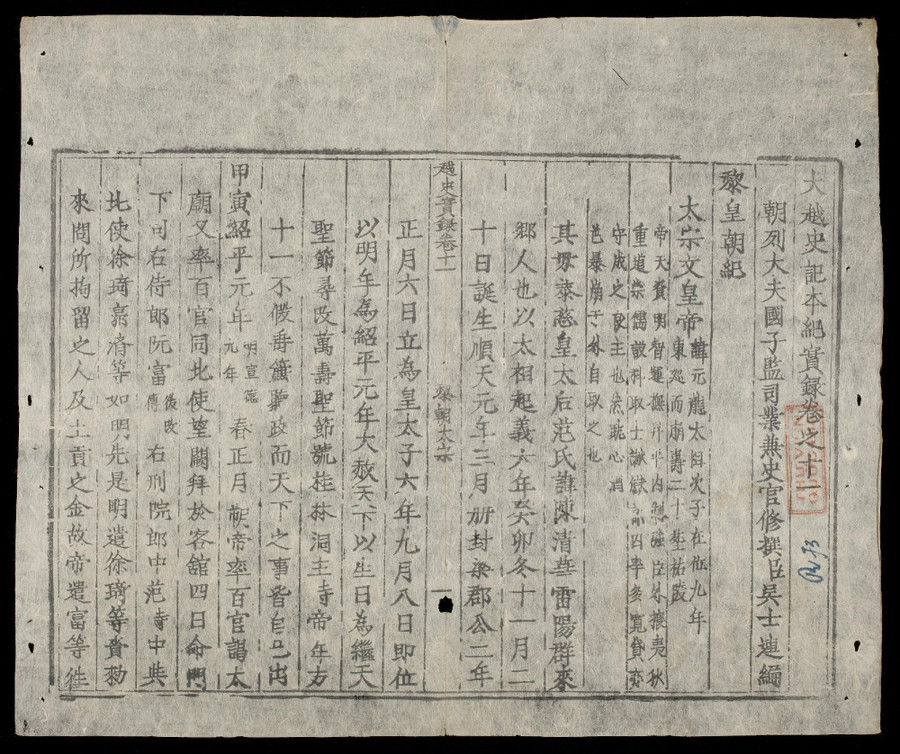 大越史記本紀實録卷之十一
朝列大夫國子監司業兼史官修撰臣吳士連編
黎皇朝紀
太宗文皇帝
諱元龍太祖次子在位九年
東巡而崩壽二十葬祐陵
帝天資明智
重道崇儒設科取士
守成之良主也
自取之也
其母恭慈皇太后范氏諱陳清華雷陽群來
鄉人也以太祖起義六年癸卯冬十一月二
十日誕生順天元年三月册封梁郡公二年
越史實録卷十一 黎朝太宗 一
正月六日立為皇太子六年九月八日即位
以明年為紹平元年大赦天下以生日為繼天
聖節尋改萬壽聖節號桂林洞主時帝年方
十一不假垂簾政而天下之事皆自己出
甲寅紹平元年明宣德九年春正月朔帝率百官謁太
廟又率百官同北使望闕拜於客館四日命門
下司右侍郎阮富後改傳右刑院郎中范時中與
北使徐琦郭濟等如明先是明遣徐琦等賫勑
來問所拘留之人及土貢之金故帝遣富等徃